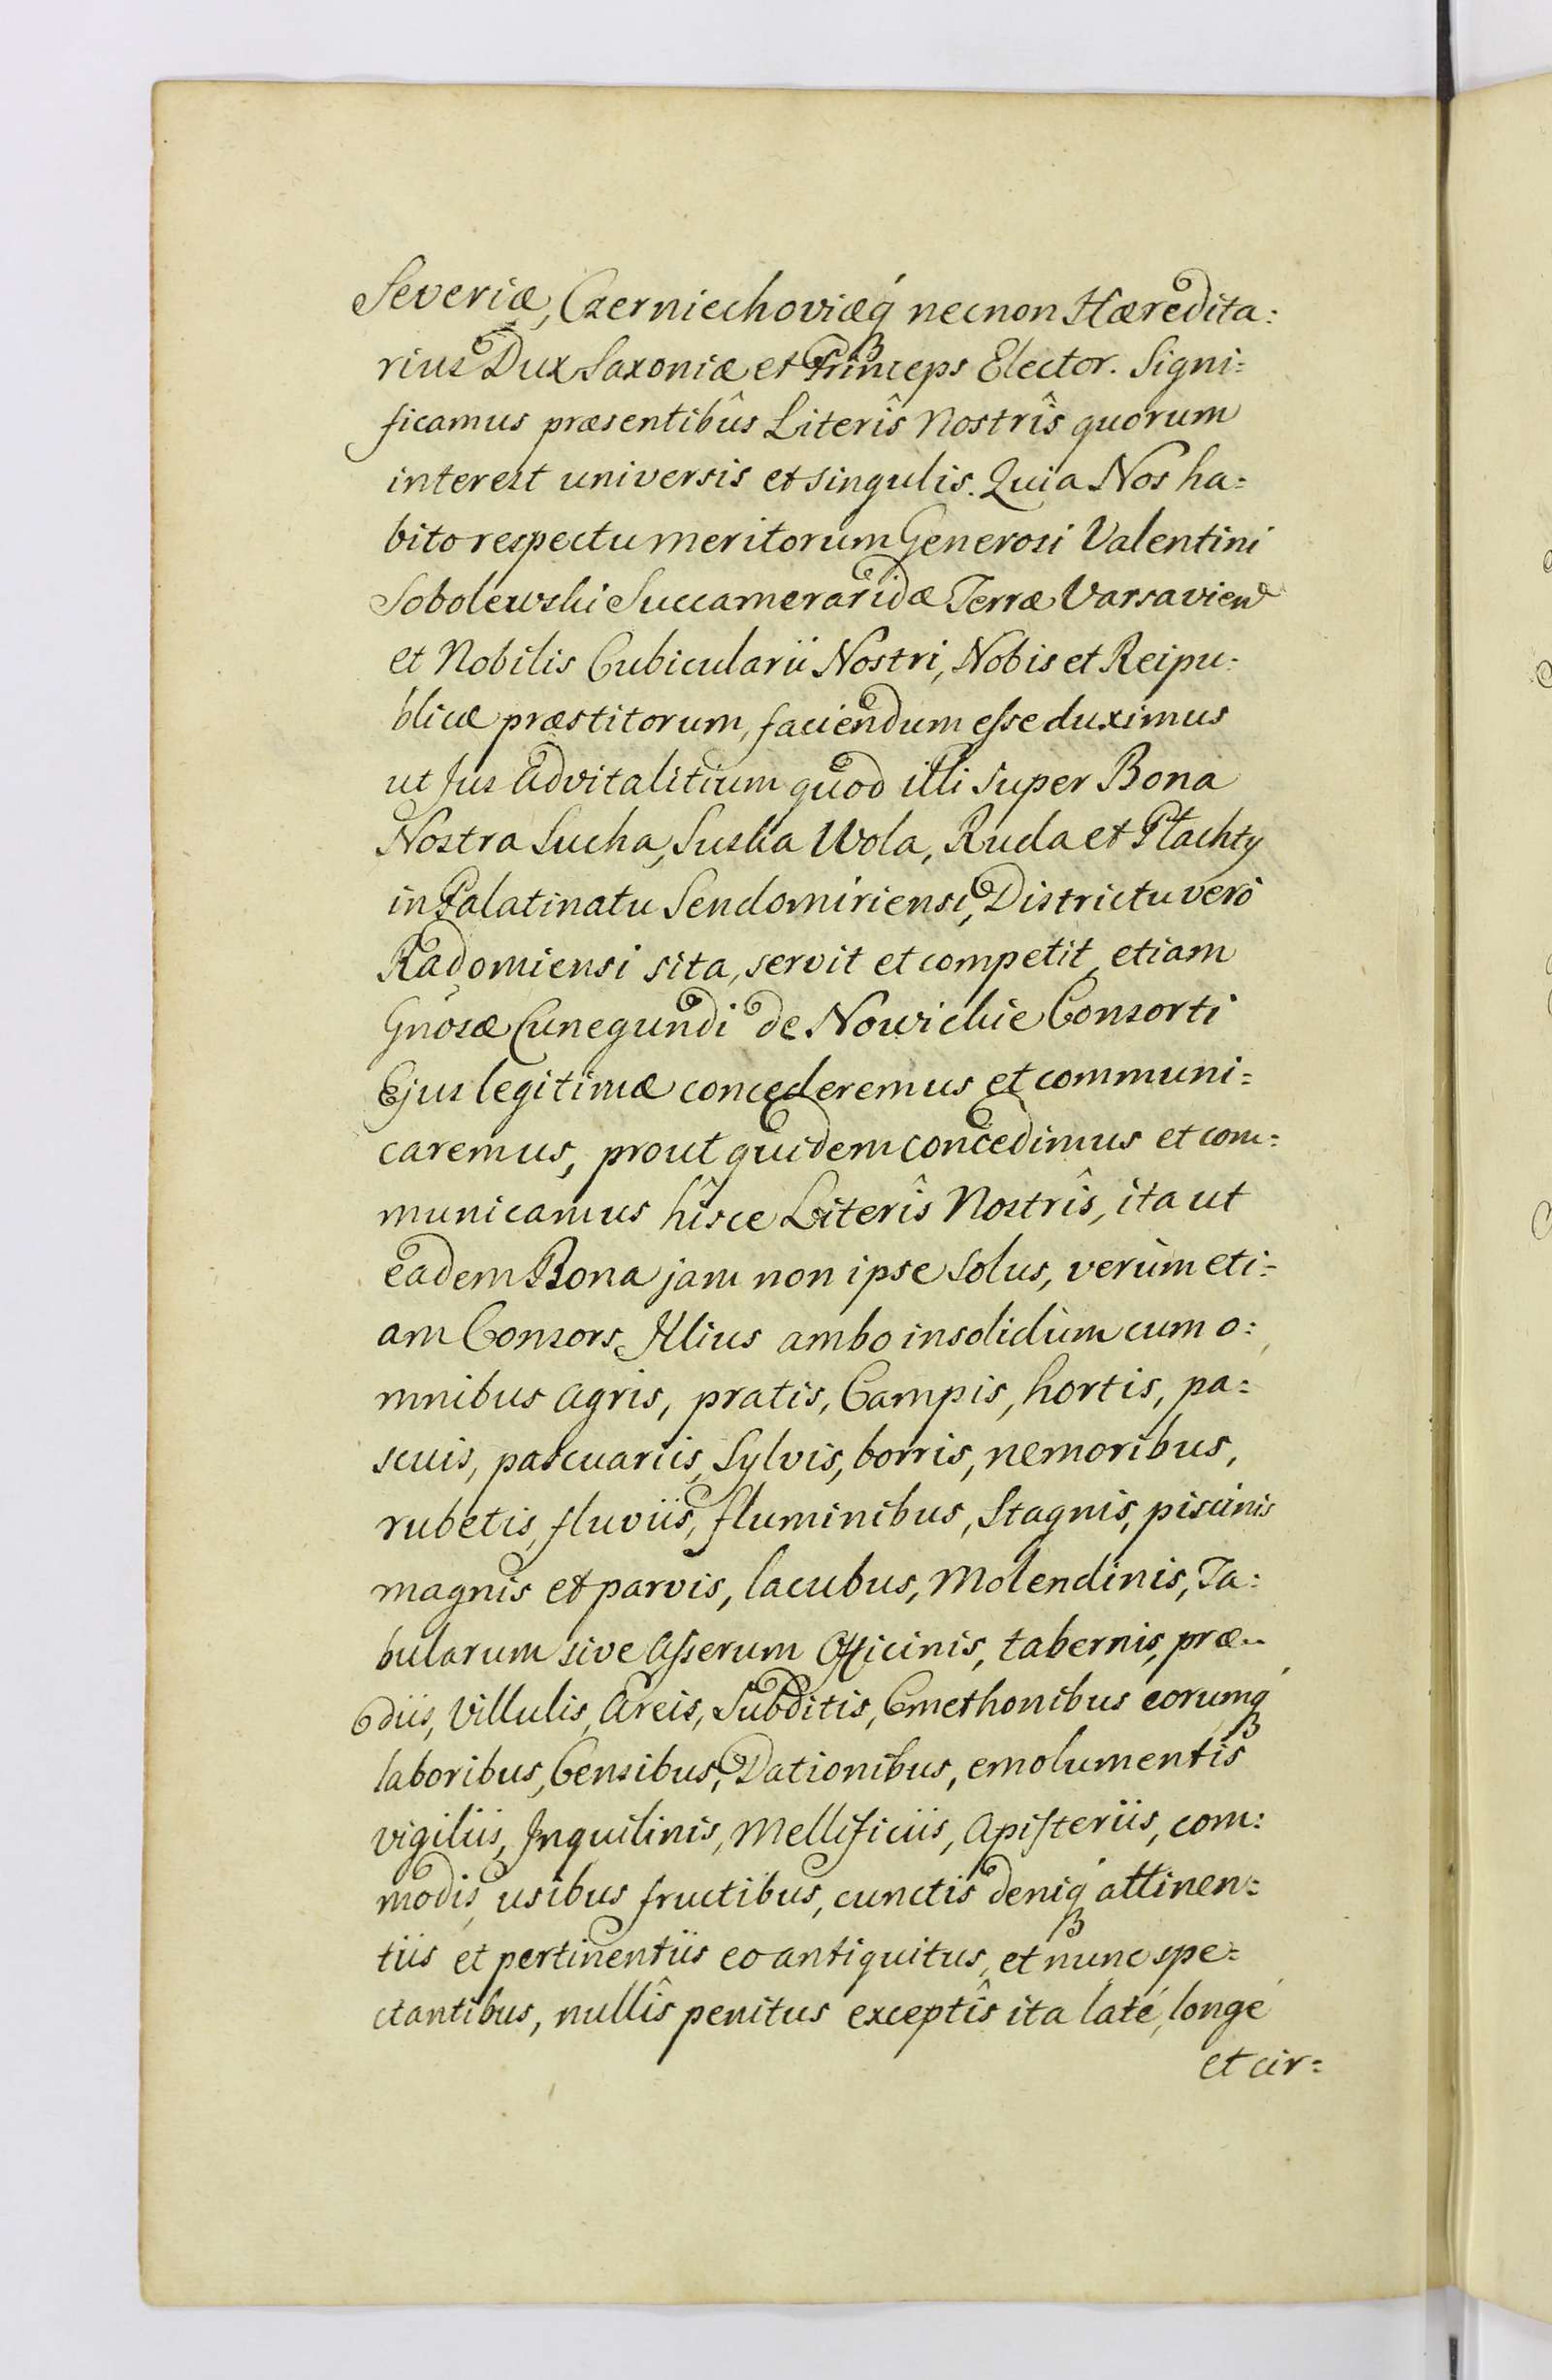 Severiæ, Czerniechoviæq́ necnon Hæredita:
rius Dux Saxoniæ et Princeps Elector. Signi:
ficamus præsentibûs Literîs Nostrîs quorum
interest universis et singulis. Quia Nos ha:
bito respectu meritorum Generosi Valentini
Sobolewski Succameraridæ Terræ Varsavien
et Nobilis Cubicularii Nostri, Nobis et Reipu:
blicæ præstitorum, faciendum esse duximus
ut Jus Advitalitium quod illi super Bona
Nostra Sucha, Suska Wola, Ruda et Płachty
in Palatinatu Sendomiriensi, Districtu verò
Radomiensi sita, servit et competit, etiam
Gnosæ Cunegundi de Nowickie Consorti
Ejus legitimæ concederemus et communi:
caremus, prout quidem concedimus et com:
municamus hîsce Literîs Nostrîs, ita ut
eadem Bona jam non ipse solus, verùm eti:
am Consors Illius ambo insolidùm cum o:
mnibus agris, pratis, Campis, hortis, pa:
scuis, pascuariis, Sylvis, borris, nemoribus,
rubetis, fluviis, fluminibus, Stagnis, piscinis
magnis et parvis, lacubus, Molendinis, Ta:
bularum sive Asserum Officinis, tabernis, præ:
diis, Villulis, Areis, Subditis, Cmethonibus eorumq́
laboribus, Censibus, Dationibus, emolumentis
vigiliis, Inquilinis, Mellificiis, Apisteriis, com:
modis, usibus fructibus, cunctis deniq́ attinen:
tiis et pertinentiis eo antiquitus, et nunc spe:
ctantibus, nullîs penitus exceptîs ita laté, longé
et cir: